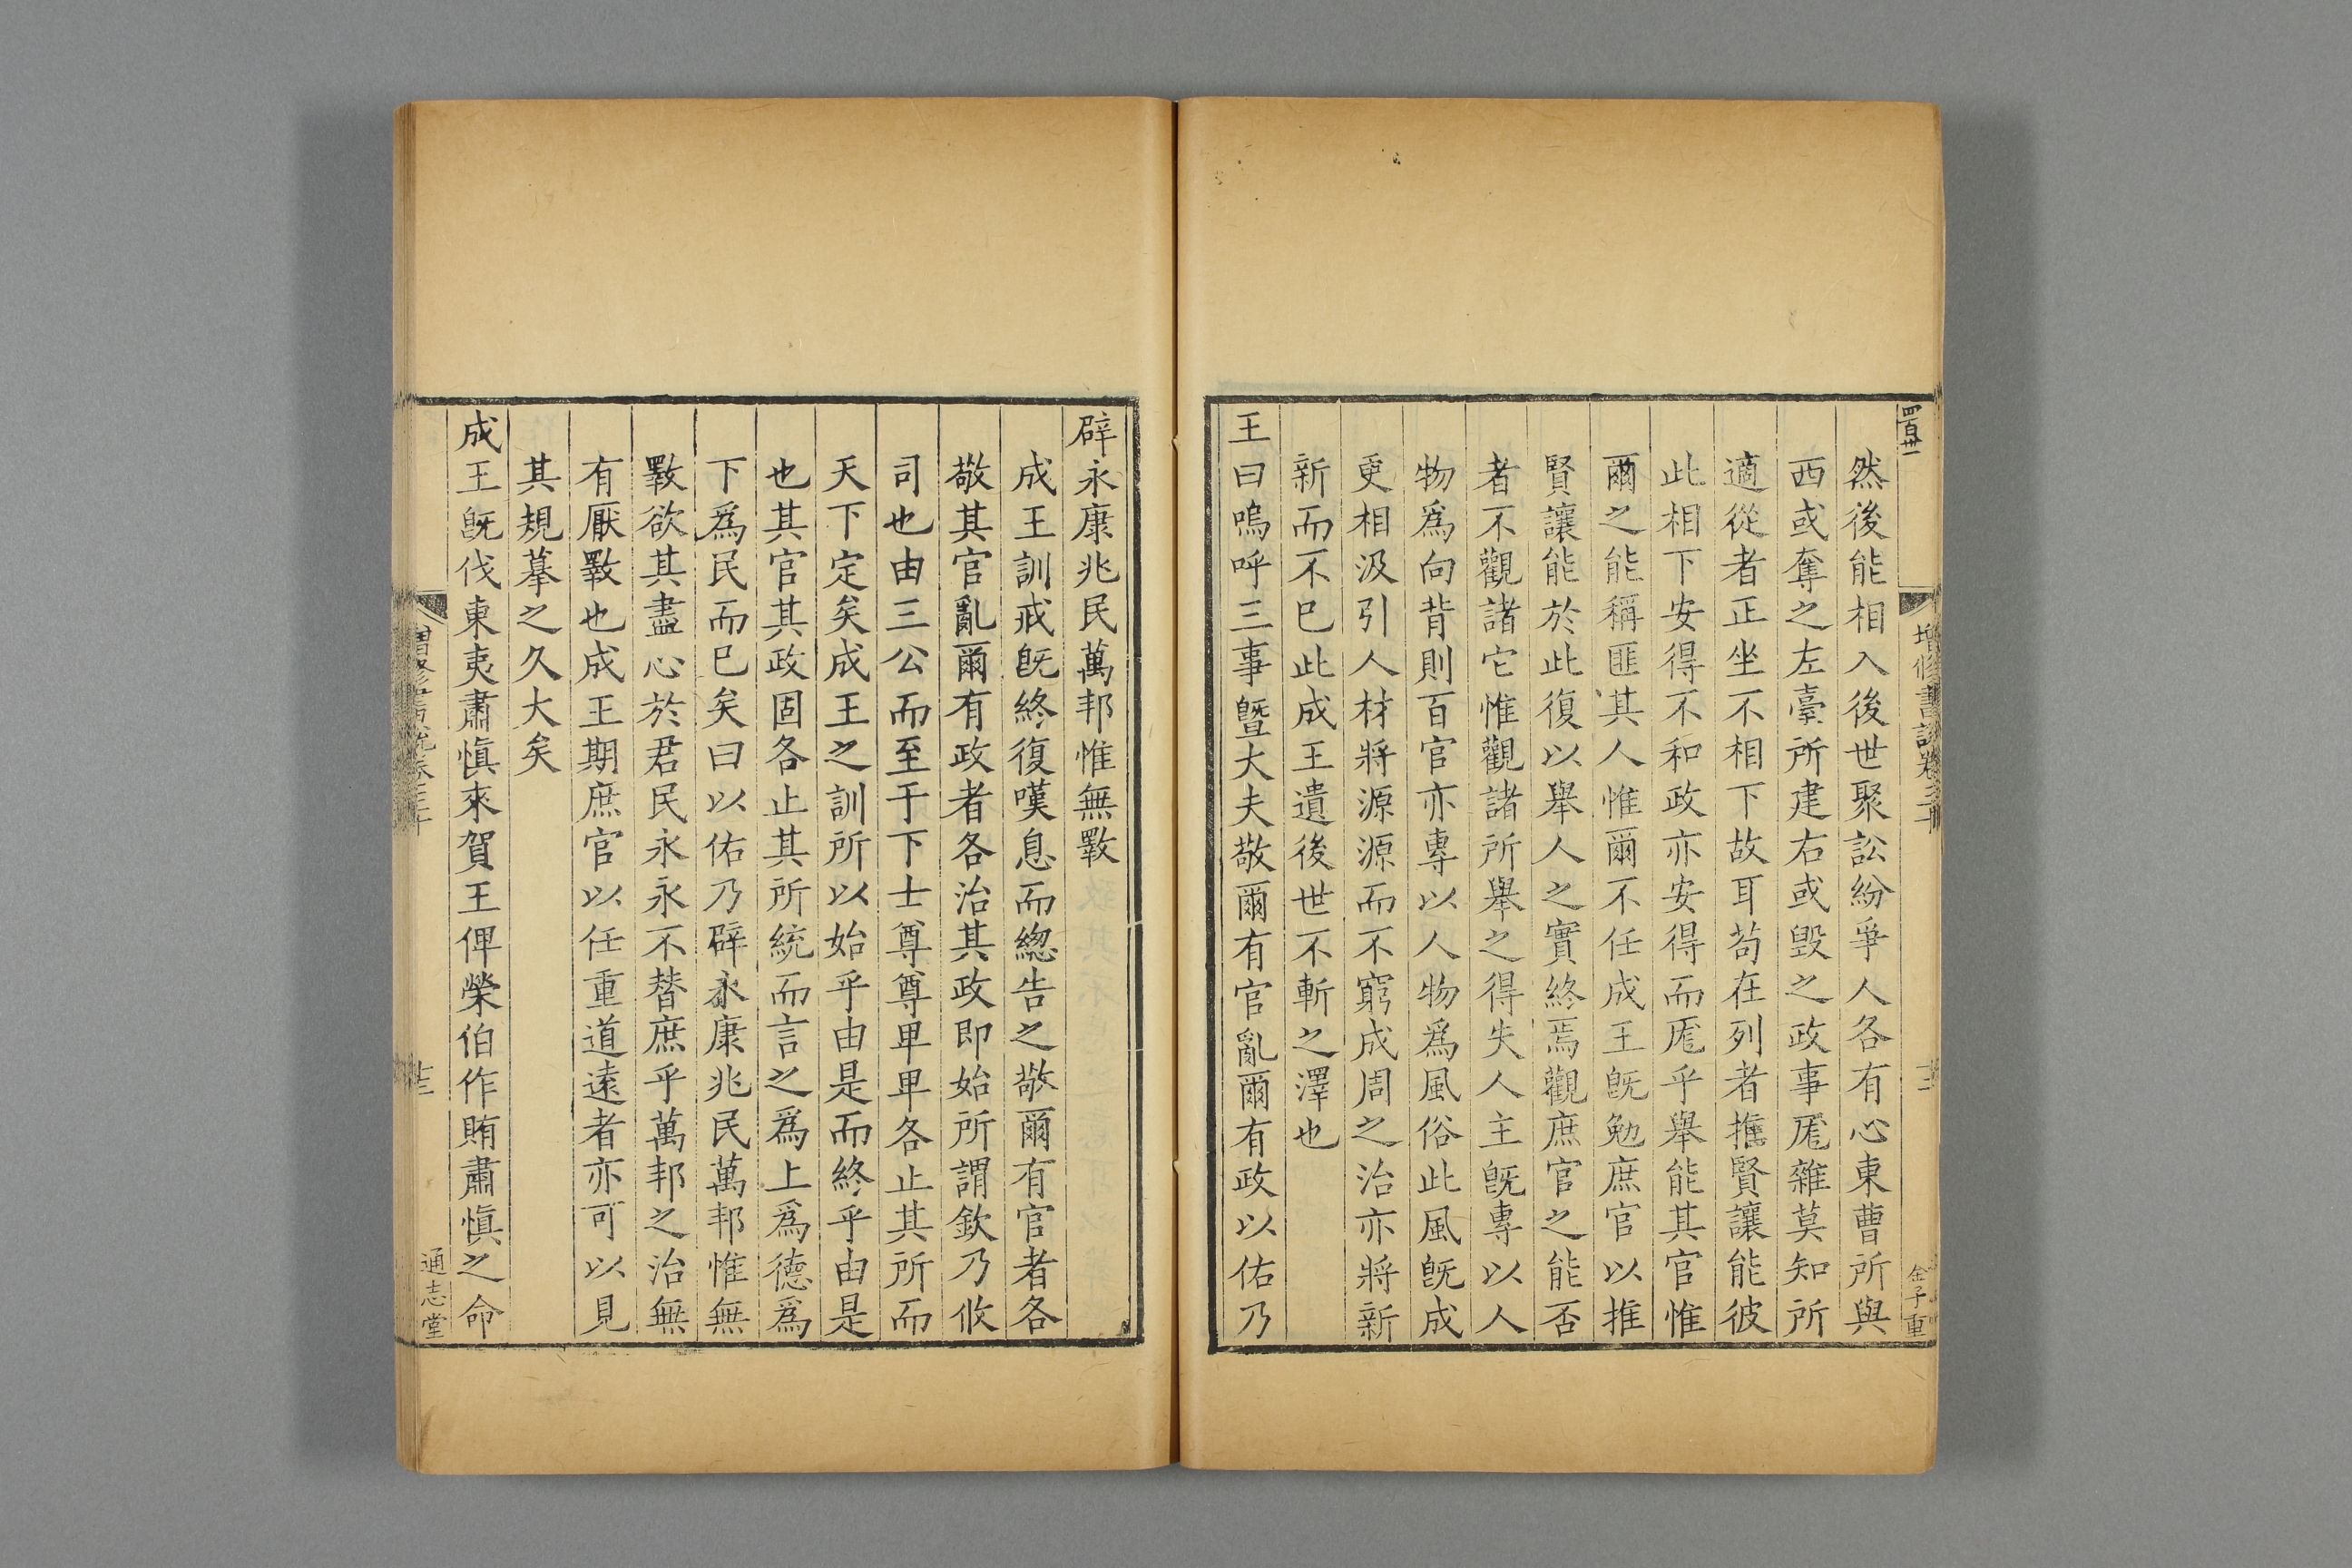 四百卅一
增修書說卷三十
金子重
然後能相入後世聚訟紛爭人各有心東曹所與
西或奪之左臺所建右或毀之政事厖雜莫知所
適從者正坐不相下故耳苟在列者推賢讓能彼
此相下安得不和政亦安得而厖乎舉能其官惟
爾之能稱匪其人惟爾不任成王旣勉庶官以推
賢讓能於此復以舉人之實終焉觀庶官之能否
者不觀諸它惟觀諸所舉之得失人主旣專以人
物爲向背則百官亦專以人物爲風俗此風旣成
更相汲引人材將源源而不窮成周之治亦將新
新而不已此成王遺後世不斬之澤也
王曰嗚呼三事曁大夫敬爾有官亂爾有政以佑乃
辟永康兆民萬邦惟無斁
成王訓戒旣終復嘆息而緫告之敬爾有官者各
敬其官亂爾有政者各治其政即始所謂欽乃攸
司也由三公而至于下士尊尊卑卑各止其所而
天下定矣成王之訓所以始乎由是而終乎由是
也其官其政固各止其所統而言之爲上爲德爲
下爲民而已矣曰以佑乃辟永康兆民萬邦惟無
斁欲其盡心於君民永永不替庶乎萬邦之治無
有厭斁也成王期庶官以任重道遠者亦可以見
其規摹之久大矣
成王旣伐東夷肅愼來賀王俾榮伯作賄肅愼之命
十三
通志堂